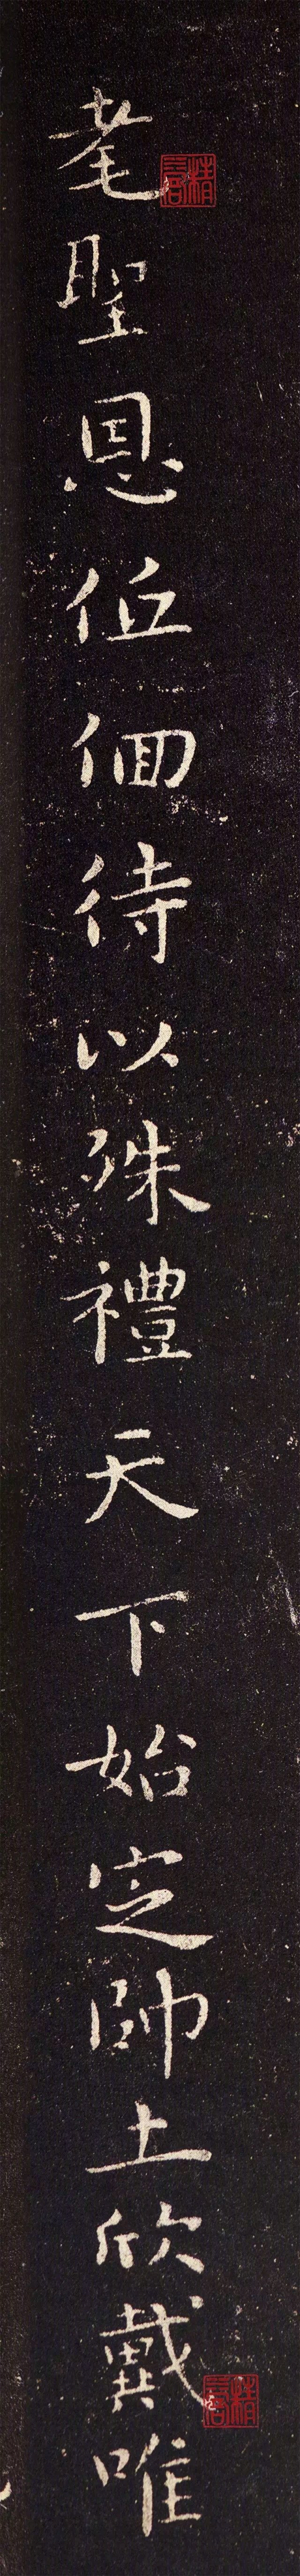 耄聖恩低佪待以殊禮天下始定帥土欣戴唯